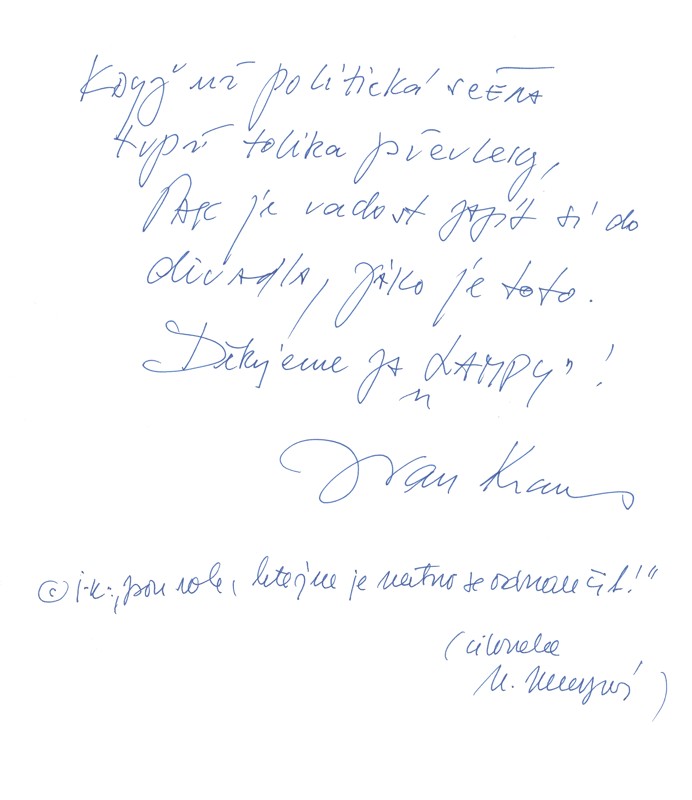 Když už politická scéna
tvoří tolika převleky,
Pak je radost zajít si do
divadla, jako je toto.
Děkujeme za „LAMPY" !
Ivan Kraus
© i-k: „jsou role, které je nutno se odnaučit!"
(citovala